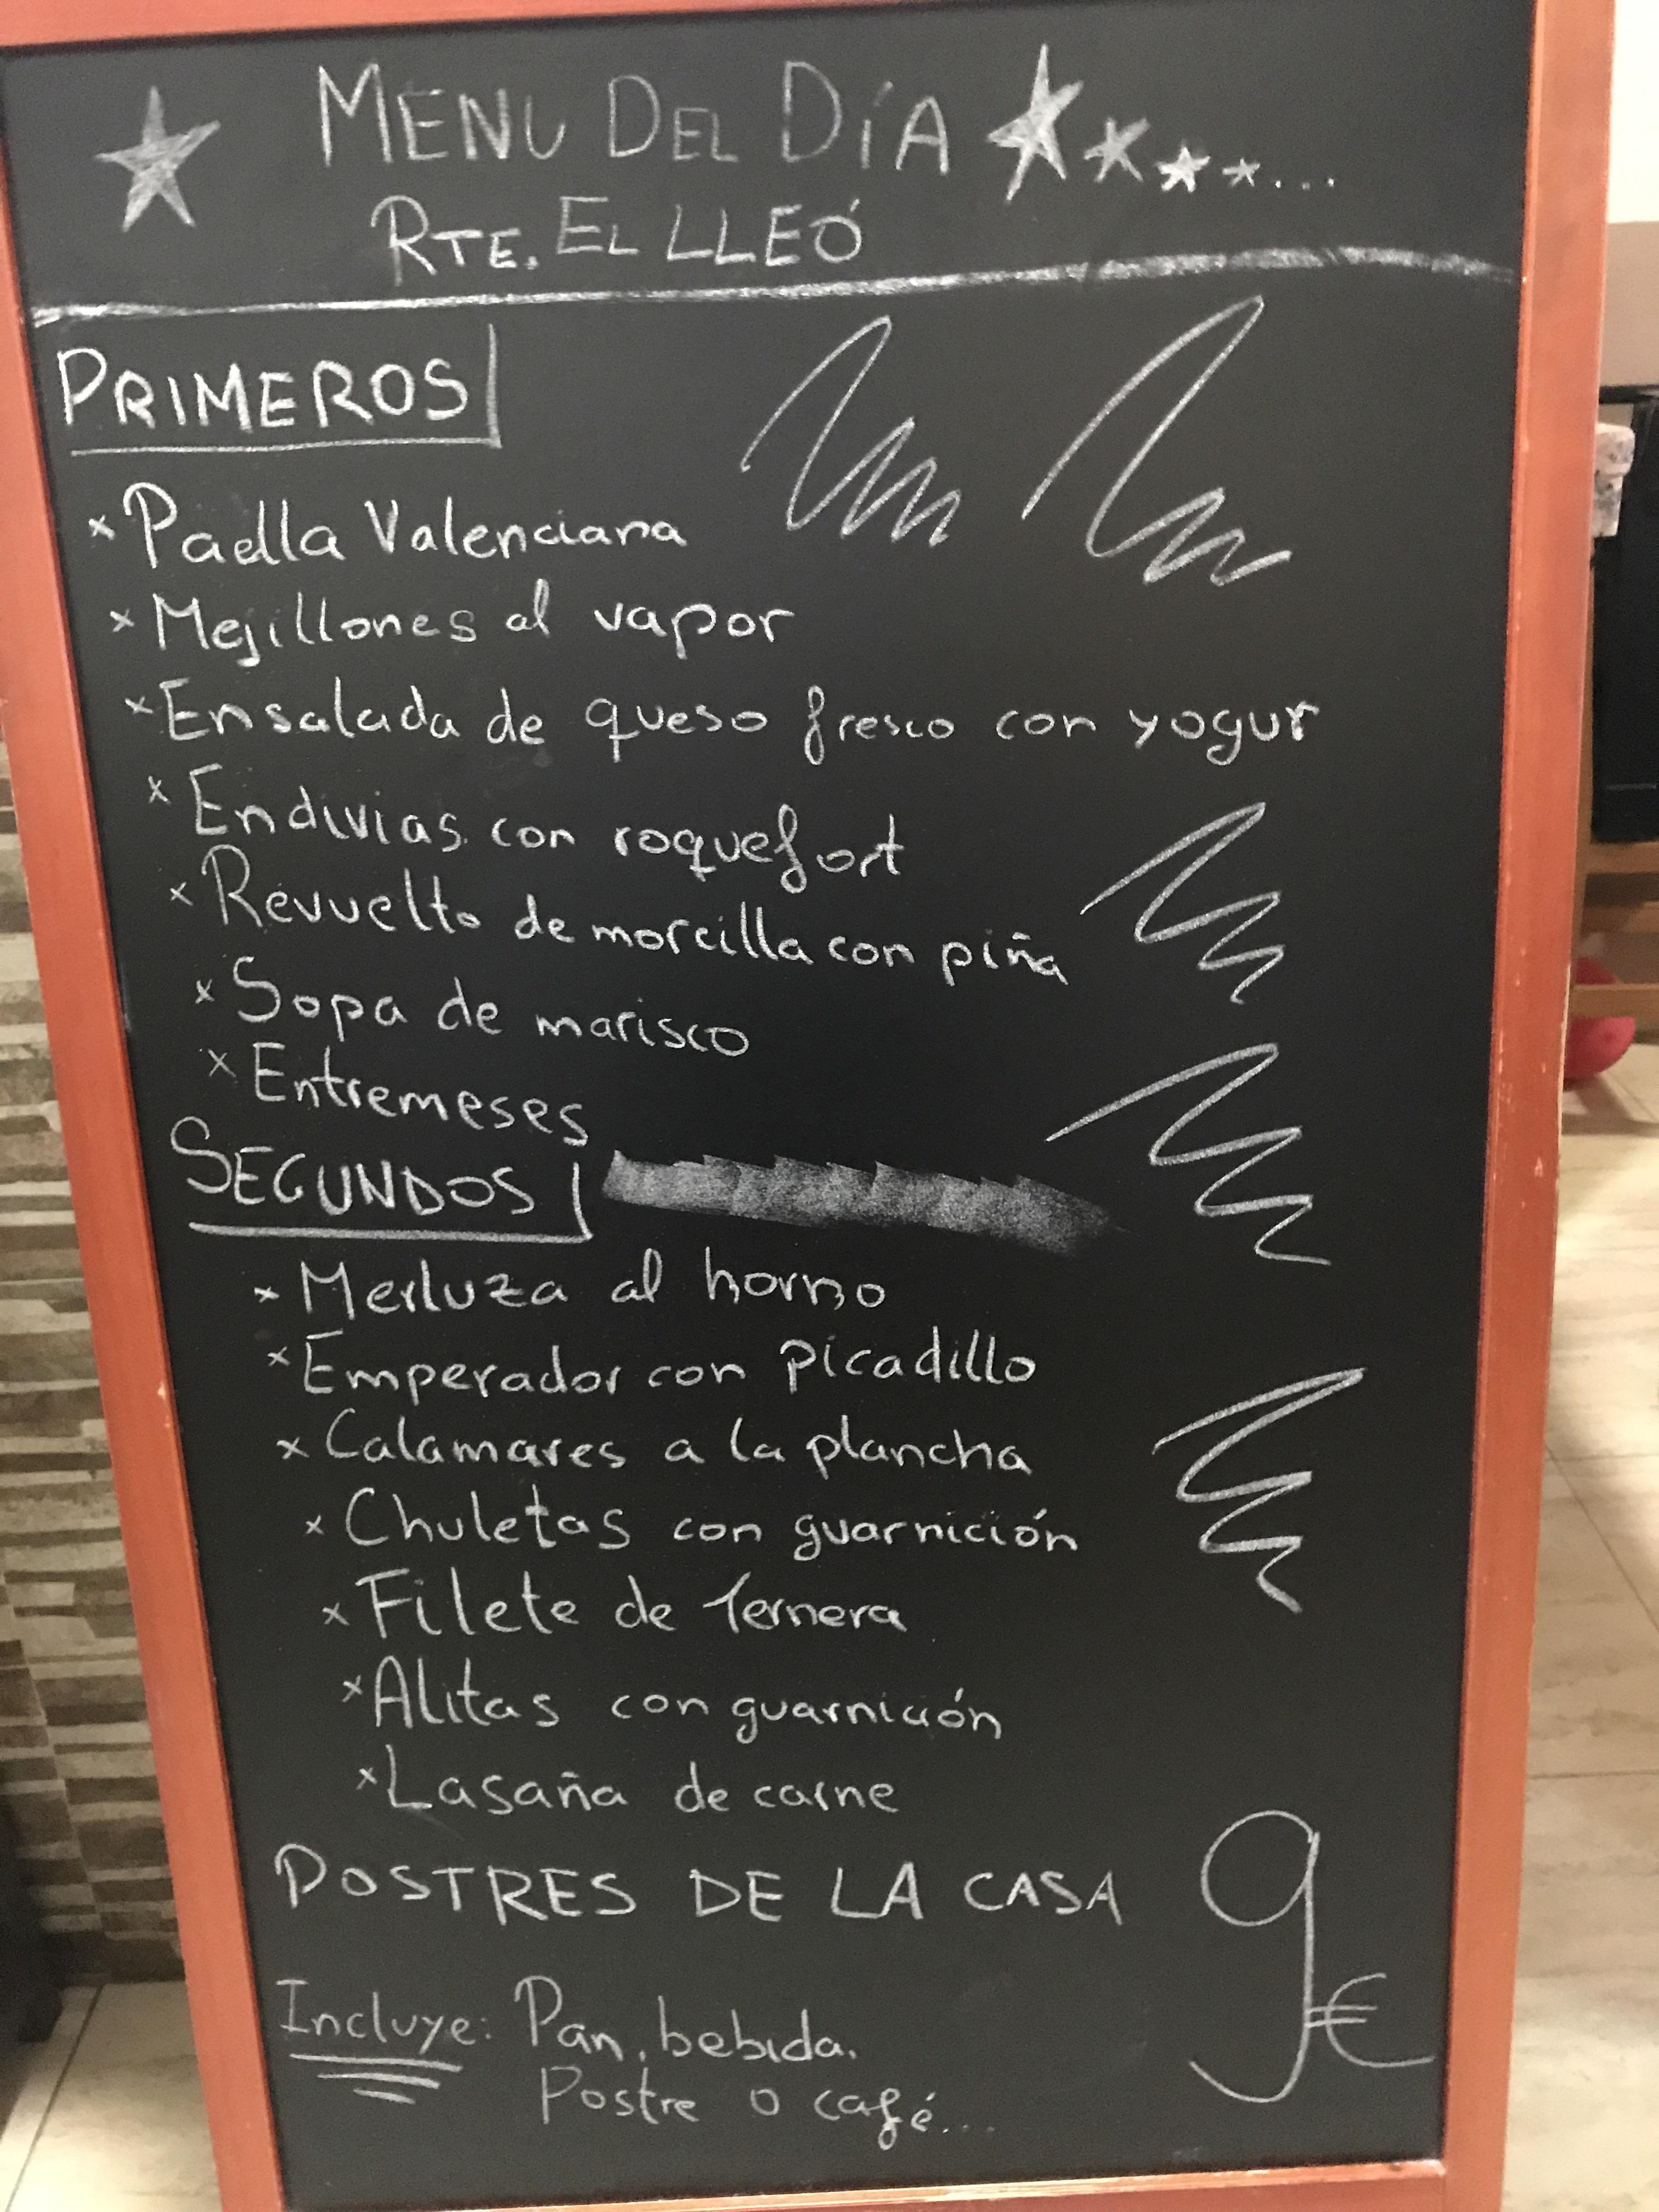 MENU DEL DÍA
RTE. EL LLEÓ
PRIMEROS
x Paella Valenciana
x Mejillones al vapor
x Ensalada de queso fresco con yogur
x Endivias con roquefort
x Revuelto de morcilla con piña
x Sopa de marisco
x Entremeses
SEGUNDOS
x Merluza al horno
x Emperador con picadillo
x Calamares a la plancha
x Chuletas con guarnición
x Filete de ternera
x Alitas con guarnición
x Lasaña de carne
POSTRES DE LA CASA
9€
Incluye: Pan, bebida.
Postre o café...